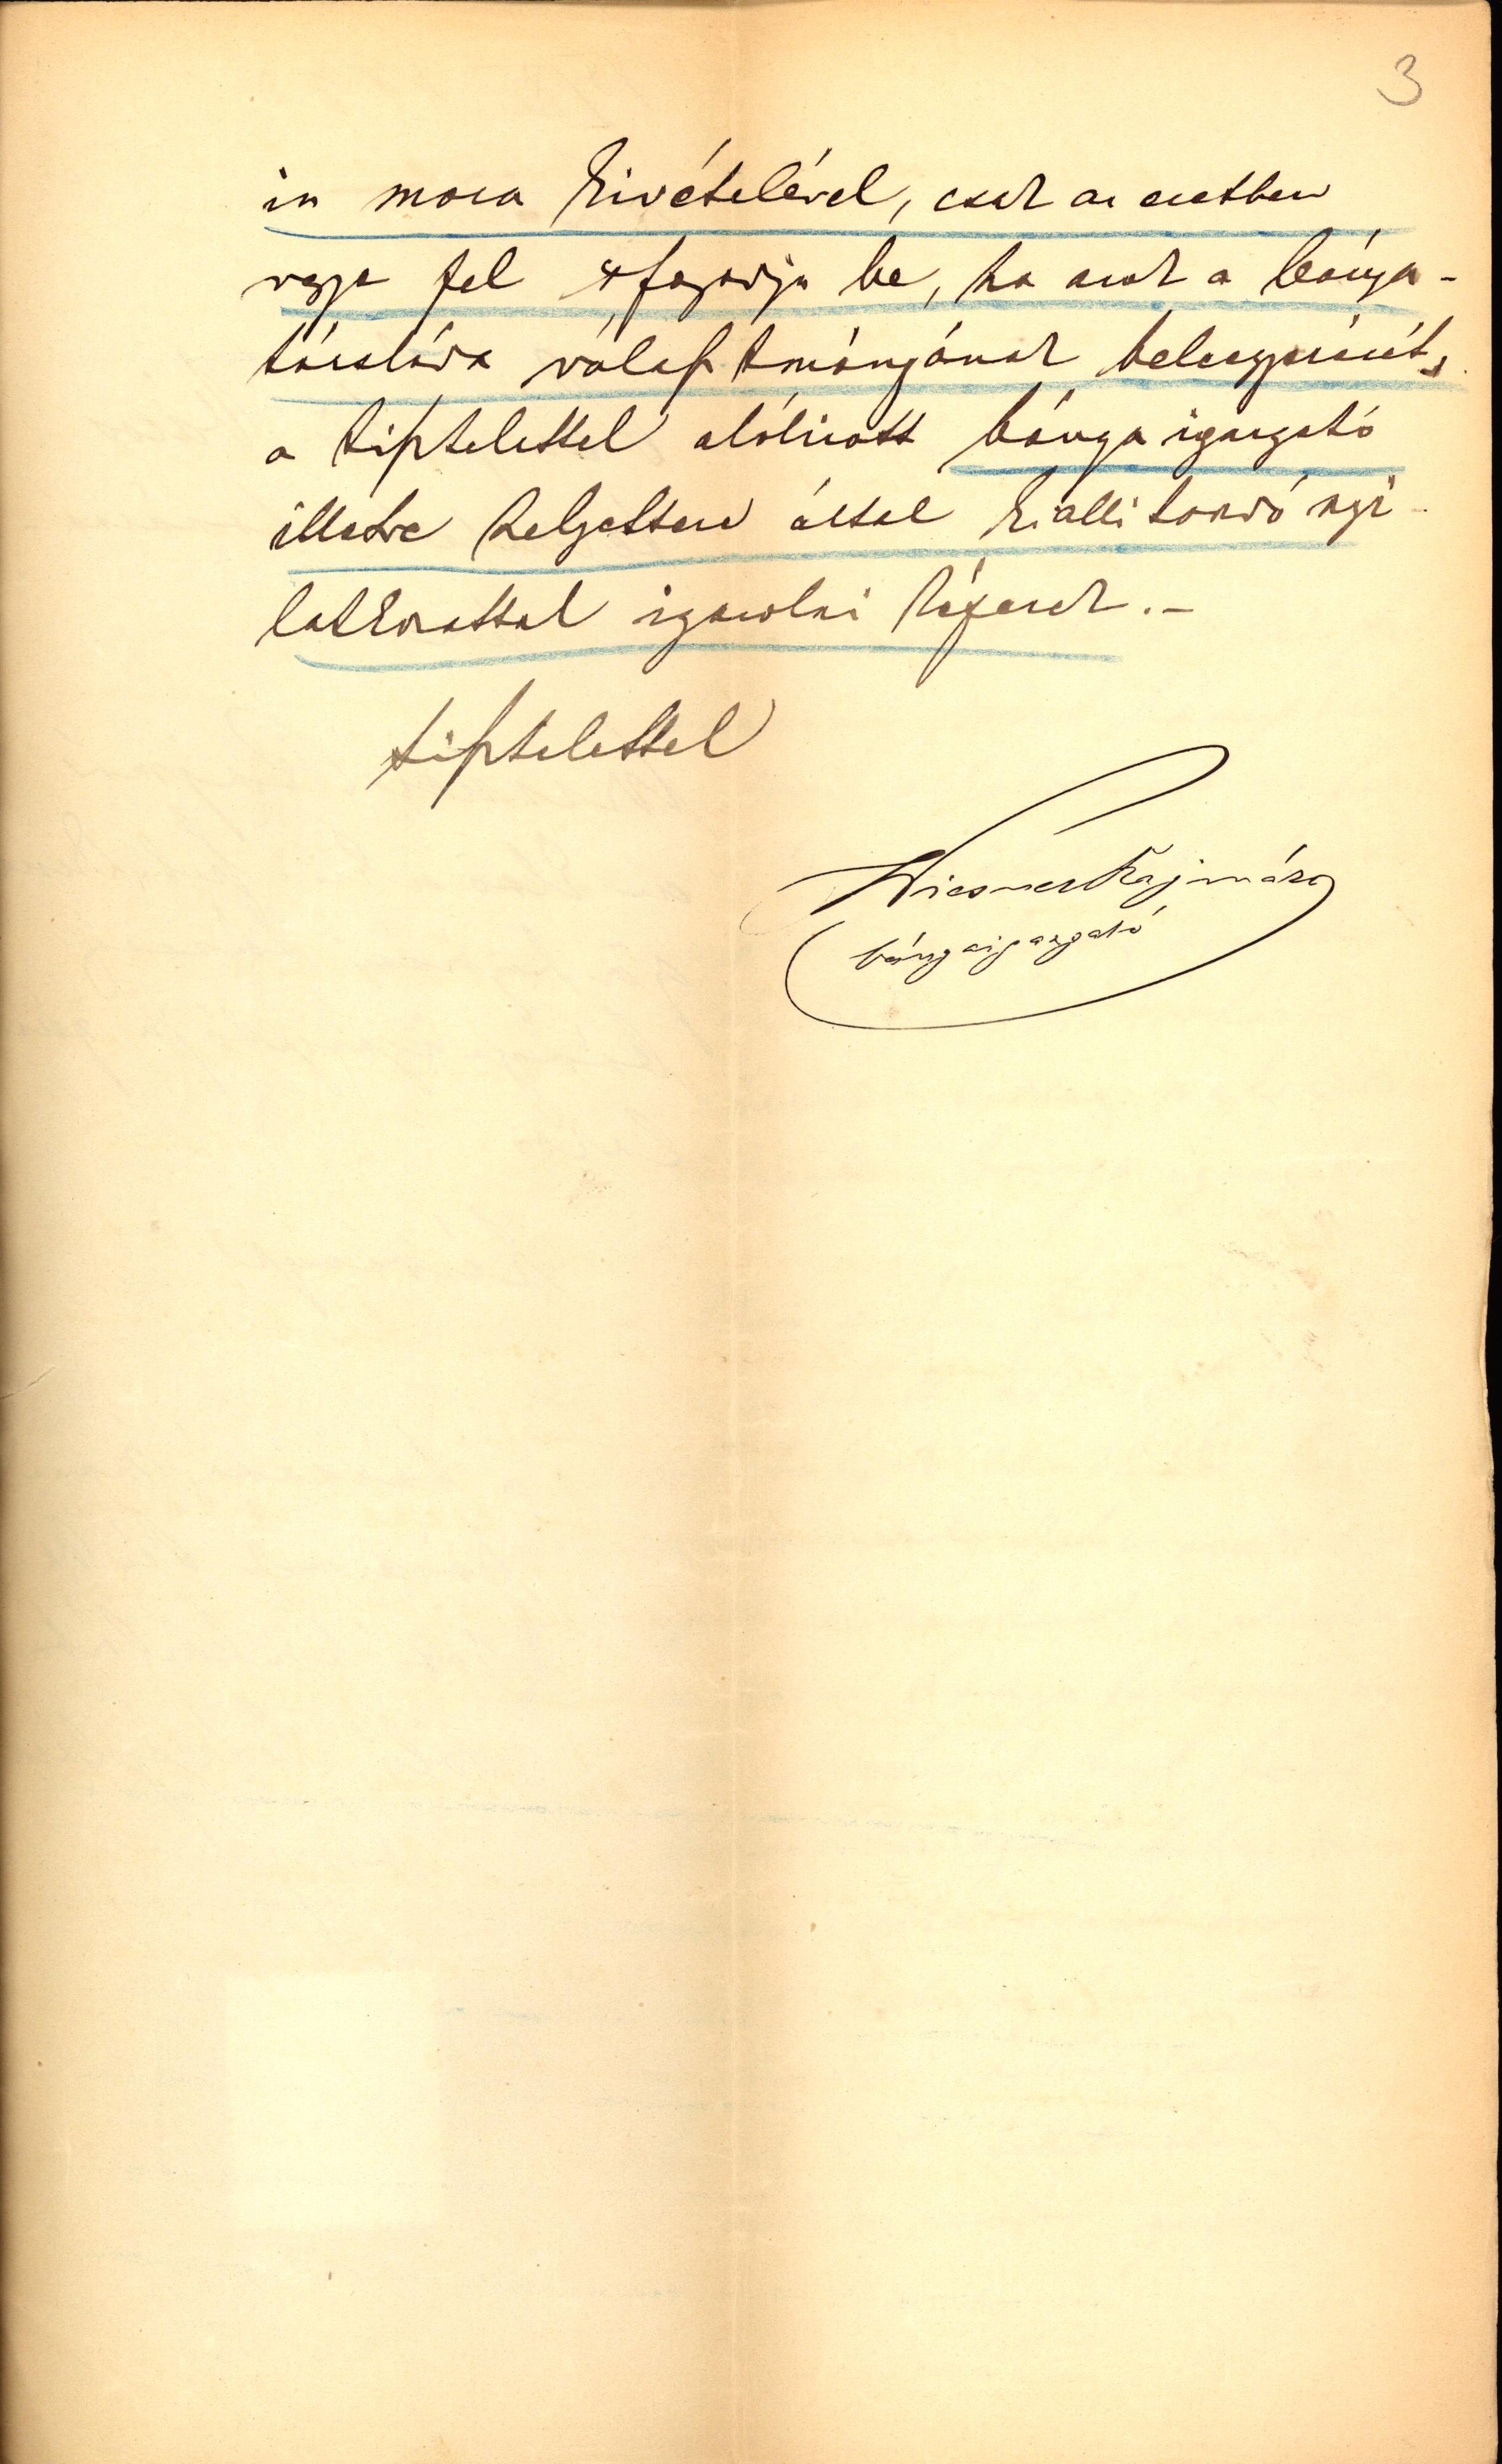 3
in mora kivételével, csak az esetben
vegye fel s fogadja be, ha azok a bánya-
társláda választmányának beleegyezését,
a tisztelettel alólirott bányaigazgató
illetve helyettese által kiallitandó nyi-
latkozattal igazolni képesek.-
tisztelettel
Wiesner Rajmár
bányaigazgató